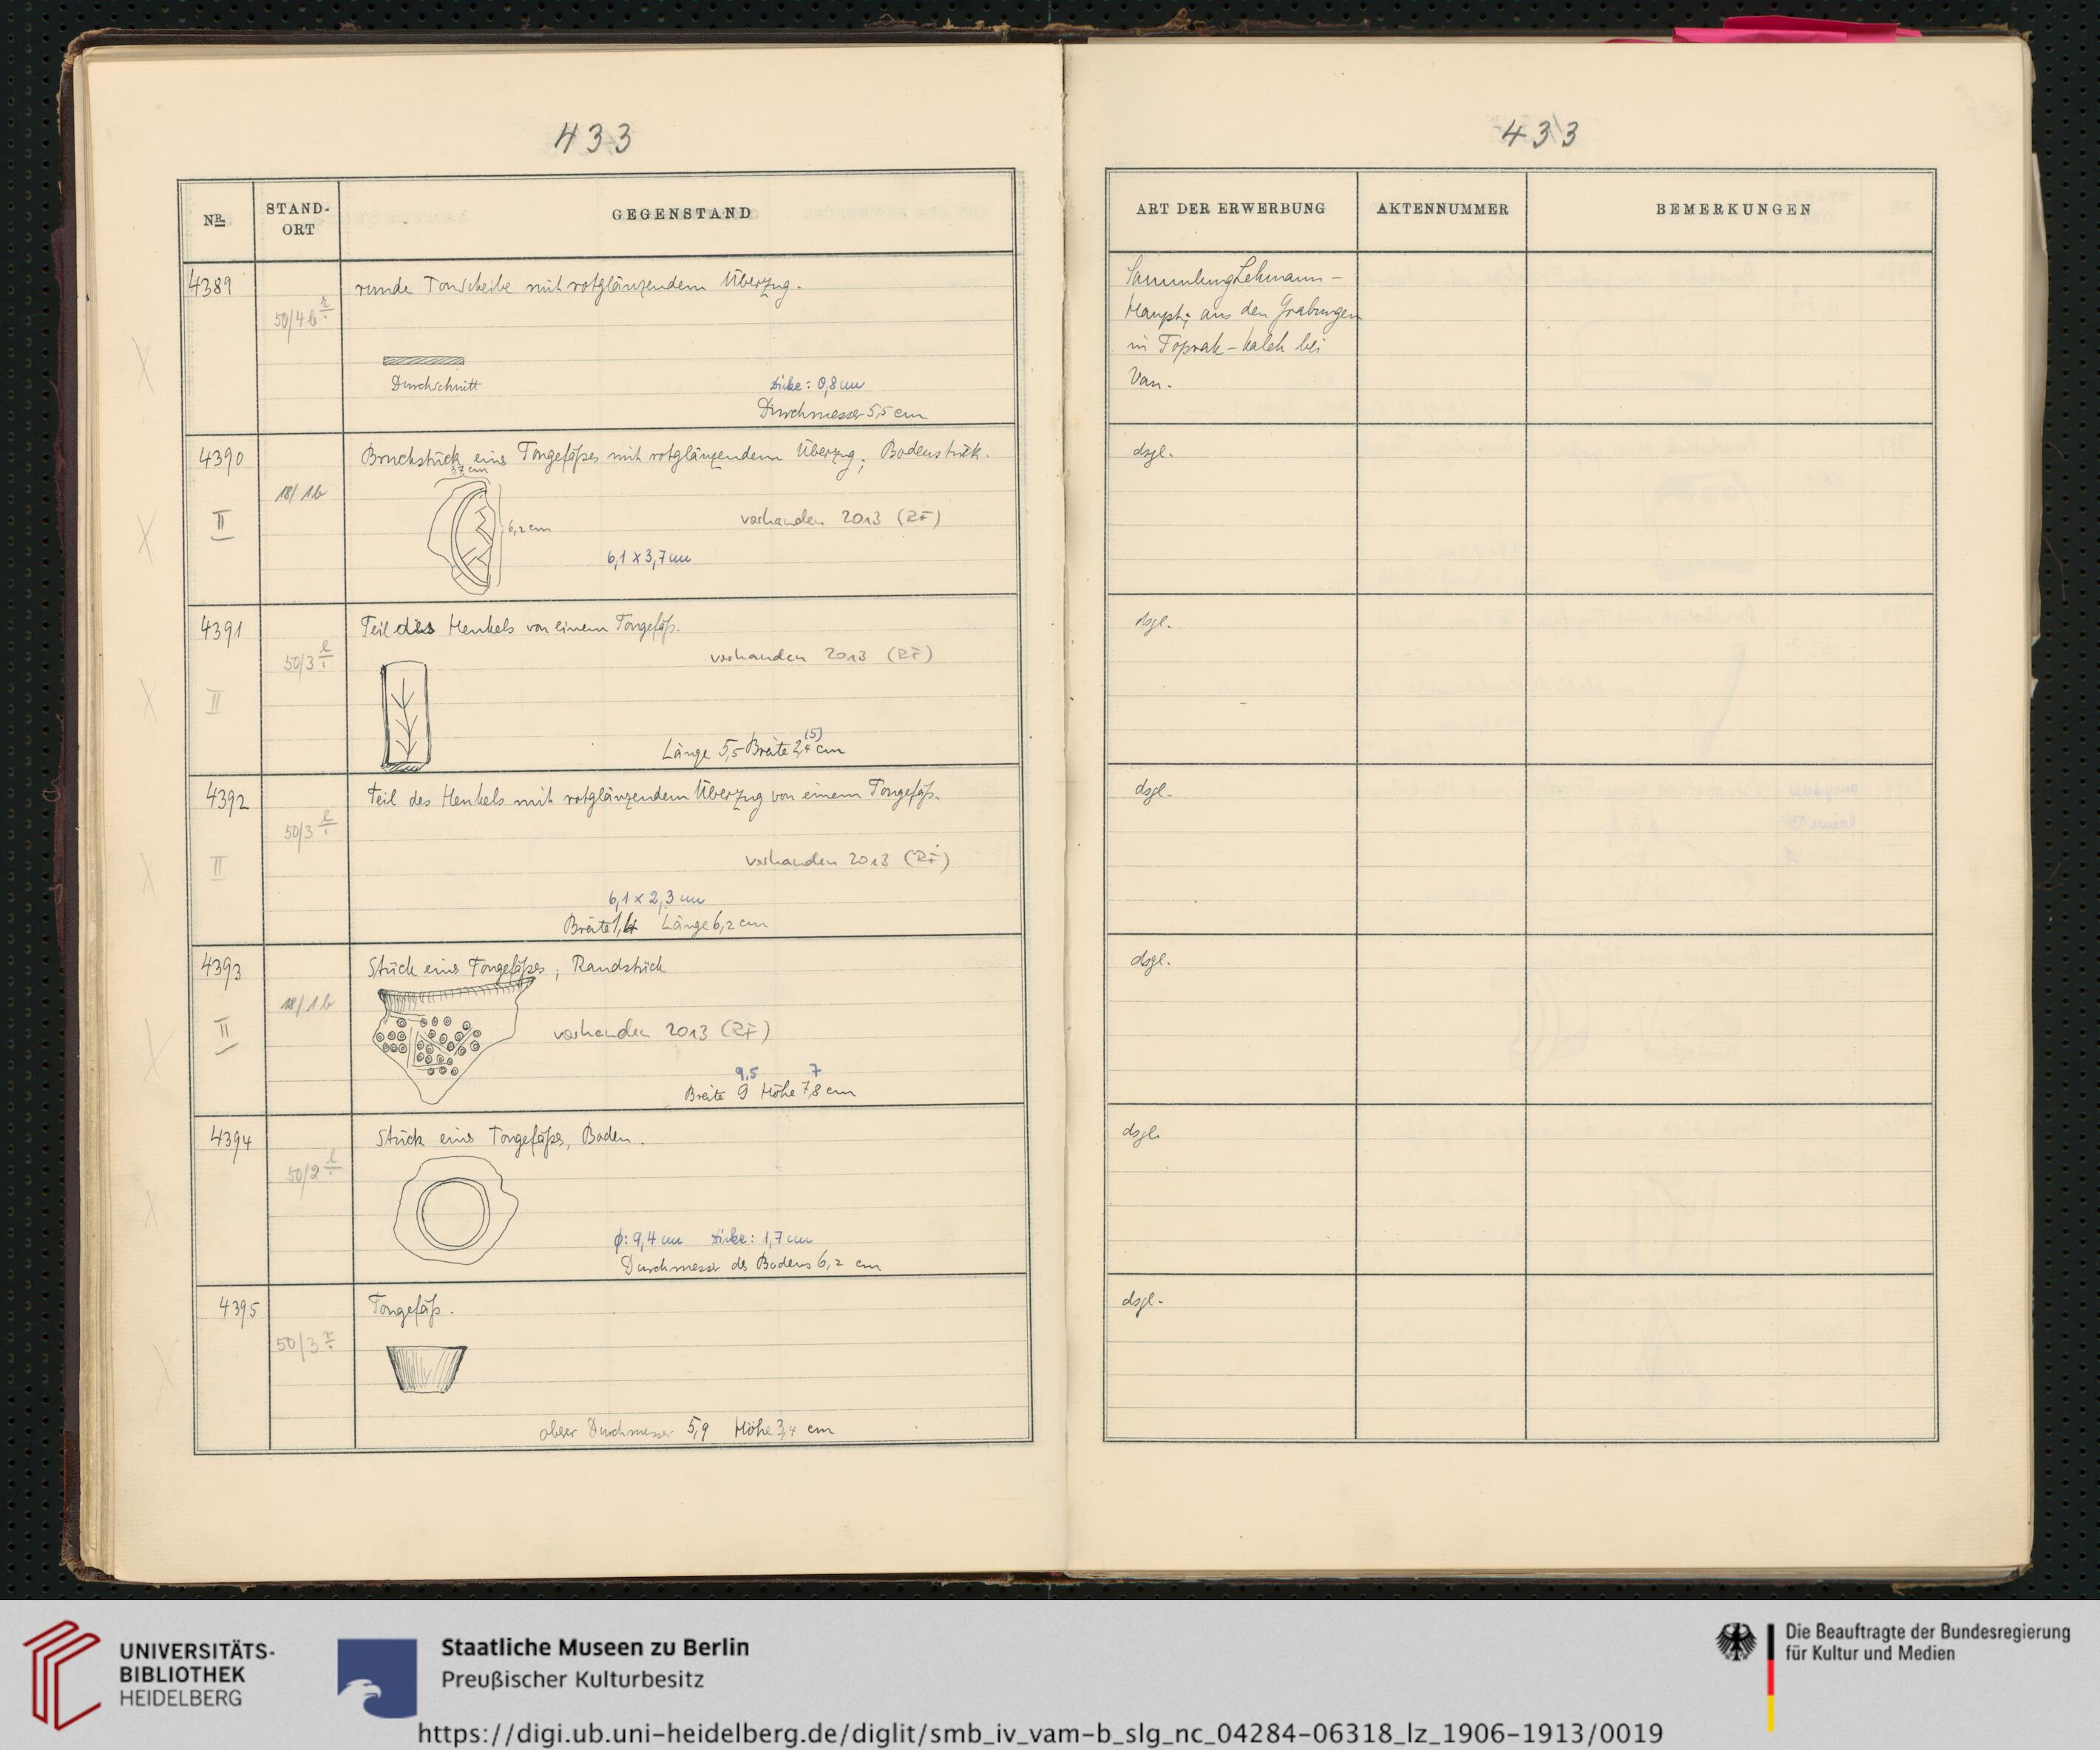 433
NR.
STAND-
ORT
GEGENSTAND
4389
50/4b r/i
runde Tonscheibe mit rotglänzendem Überzug.
Durchschnitt
Dicke: 0,8 cm
Durchmesser 5,5 cm
4390
18/1b
II
Bruchstück eines Tongefäßes mit rotglänzendem Überzug; Bodenstück.
3,7 cm
6,2 cm
vorhanden 2013 (RF)
6,1 x 3,7 cm
4391
50/3 l/i
II
Teil des Henkels von einem Tongefäß.
vorhanden 2013 (RF)
(5)
Länge 5,5 Breite 2,4 cm
4392
50/3 l/i
II
Teil des Henkels mit rotglänzendem Überzug von einem Tongefäß.
vorhanden 2013 (RF)
6,1 x 2,3 cm
Breite Länge 6,2 cm
4393
18/1b
II
Stück eines Tongefäßes; Randstück
vorhanden 2013 (RF)
9,5 7
Breite 9 Höhe 7,8 cm
4394
50/2 l/i
Stück eines Tongefäßes, Boden.
ϕ: 9,4 cm Dicke: 1,7 cm
Durchmesser des Bodens 6,2 cm
4395
50/3 r/i
Tongefäß.
oberer Durchmesser 5,9 Höhe 3,4 cm
433
ART DER ERWERBUNG
AKTENNUMMER
BEMERKUNGEN
Sammlung Lehmann-
Haupt; aus den Grabungen
in Toprak-kaleh bei
Van.
dsgl.
dsgl.
dsgl.
dsgl.
dsgl.
dsgl.
UNIVERSITÄTS-
BIBLIOTHEK
HEIDELBERG
Staatliche Museen zu Berlin
Preußischer Kulturbesitz
Die Beauftragte der Bundesregierung
für Kultur und Medien
https://digi.ub.uni-heidelberg.de/diglit/smb_iv_vam-b_slg_nc_04284-06318_lz_1906-1913/0019